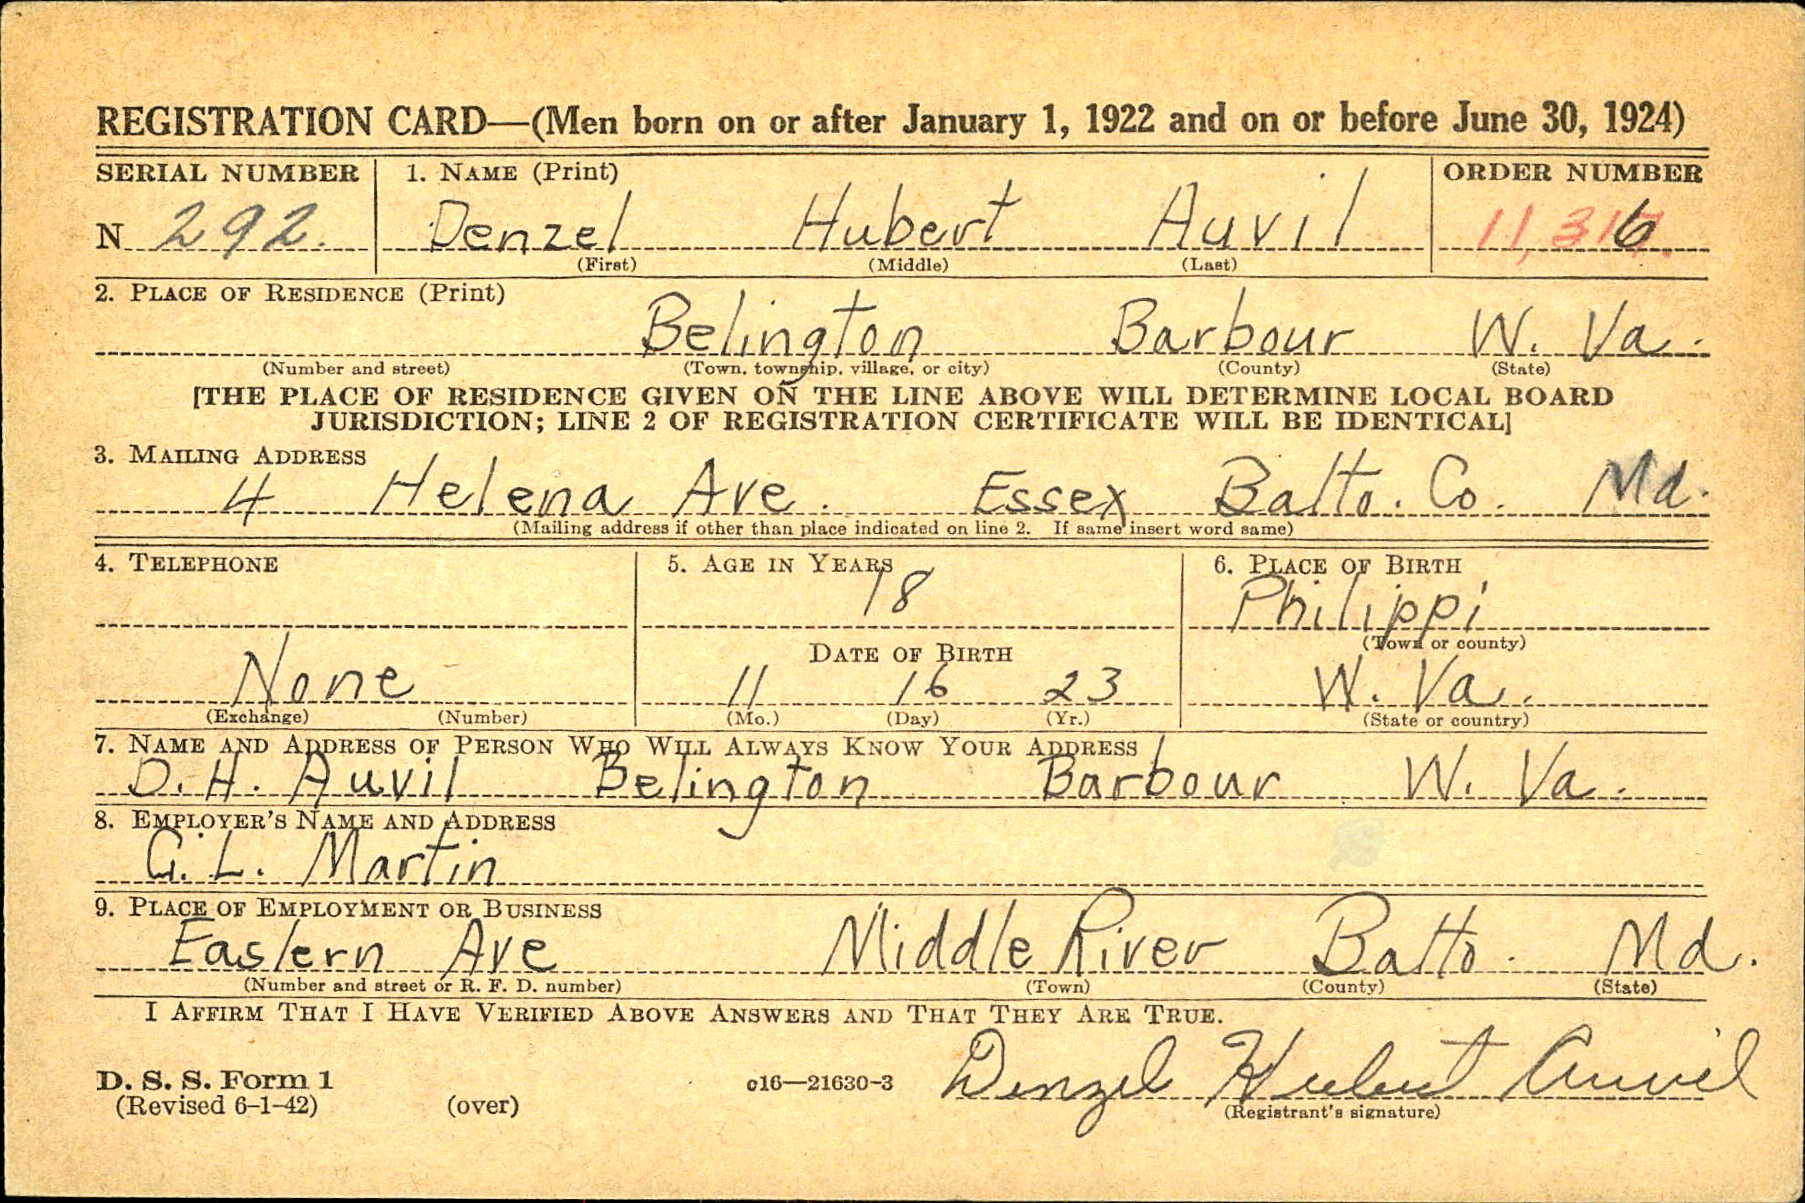 REGISTRATION CARD—(Men born on or after January 1, 1922 and on or before June 30, 1924)
SERIAL NUMBER 1. NAME (Print) ORDER NUMBER
N 292. Denzel Hubert Auvil 11,316
(First) (Middle) (Last)
2. PLACE OF RESIDENCE (Print)
Belington Barbour W. Va.
(Number and street) (Town, township, village, or city) (County) (State)
[THE PLACE OF RESIDENCE GIVEN ON THE LINE ABOVE WILL DETERMINE LOCAL BOARD
JURISDICTION; LINE 2 OF REGISTRATION CERTIFICATE WILL BE IDENTICAL]
3. MAILING ADDRESS
4 Helena Ave. Essex Balto. Co. Md.
(Mailing address if other than place indicated on line 2. If same insert word same)
4. TELEPHONE 5. AGE IN YEARS 6. PLACE OF BIRTH
18 Philippi
(Town or county)
DATE OF BIRTH
None 11 16 23 W. Va.
(Exchange) (Number) (Mo.) (Day) (Yr.) (State or country)
7. NAME AND ADDRESS OF PERSON WHO WILL ALWAYS KNOW YOUR ADDRESS
D. H. Auvil Belington Barbour W. Va.
8. EMPLOYER'S NAME AND ADDRESS
G. L. Martin
9. PLACE OF EMPLOYMENT OR BUSINESS
Eastern Ave Middle River Balto. Md.
(Number and street or R. F. D. number) (Town) (County) (State)
I AFFIRM THAT I HAVE VERIFIED ABOVE ANSWERS AND THAT THEY ARE TRUE.
D. S. S. Form 1 c16—21630-3 Denzel Hubert Auvil
(Revised 6-1-42) (over) (Registrant's signature)